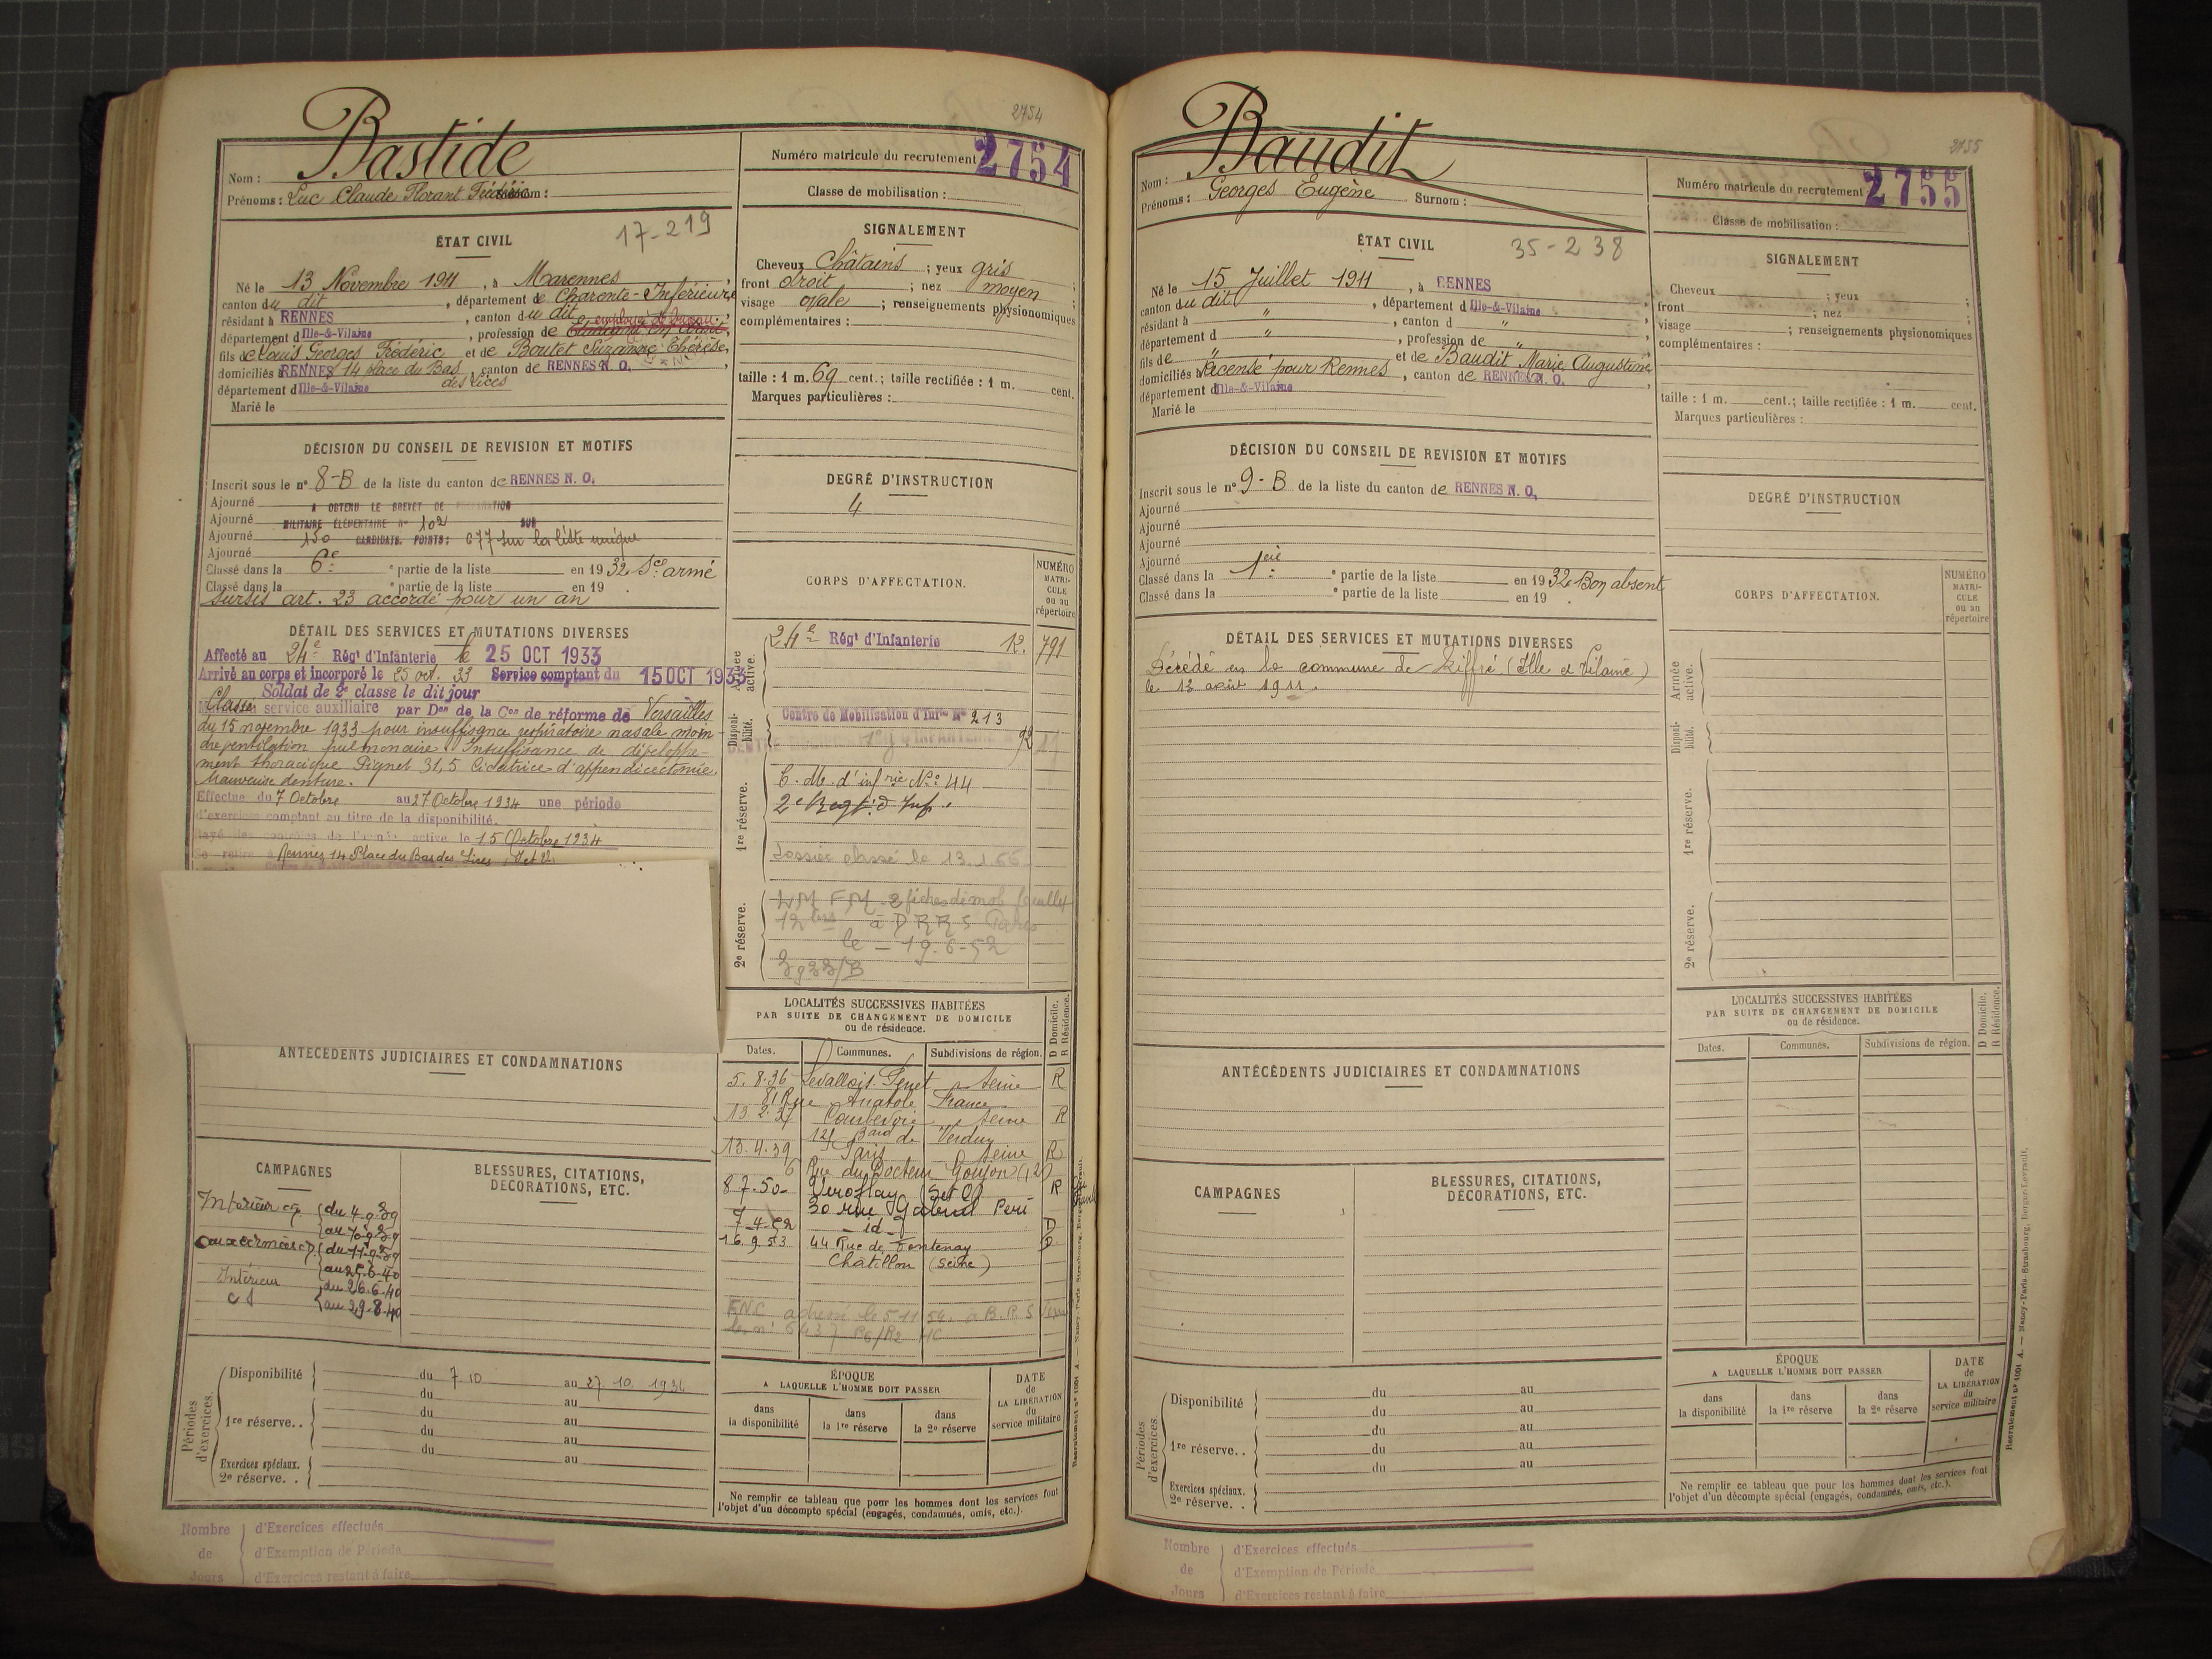 2754
Bastide
Nom :
Prénoms : Luc Claude Florant
Numéro matricule du recrutement 2754
Classe de mobilisation :
17-219
ÉTAT CIVIL
Né le 13 Novembre 1911, à Marennes,
canton du dit, département de Charente-Inférieure
résidant à RENNES, canton du dit,
département d Ille-&-Vilaine, profession de employé de bureau
fils de Louis Georges Frédéric et de Boutet Suzanne Thérèse,
domiciliés à RENNES 14 place du Bas des Lices, canton de RENNES N. O.,
département d Ille-&-Vilaine
Marié le
SIGNALEMENT
Cheveux Châtains ; yeux gris
front droit ; nez moyen ;
visage ovale ; renseignements physionomiques
complémentaires :
taille : 1 m. 69 cent.; taille rectifiée : 1 m. cent.
Marques particulières :
DÉCISION DU CONSEIL DE REVISION ET MOTIFS
Inscrit sous le n° 8-B de la liste du canton de RENNES N. O.
Ajourné A OBTENU LE BREVET DE PRÉPARATION
Ajourné MILITAIRE ÉLÉMENTAIRE N° 102 SUR
Ajourné 150 CANDIDATS. POINTS: 677 sur la liste unique
Ajourné
Classé dans la 6e partie de la liste en 1932 Sce armé
Classé dans la e partie de la liste en 19
sursis art. 23 accordé pour un an
DEGRÉ D'INSTRUCTION
4
DÉTAIL DES SERVICES ET MUTATIONS DIVERSES
Affecté au 24e Régt d'Infanterie le 25 OCT 1933
Arrivé au corps et incorporé le 25 oct. 33 Service comptant du 15 OCT 1933
Soldat de 2e classe le dit jour
Classé service auxiliaire par Don de la Con de réforme de Versailles
du 15 novembre 1933 pour insuffisance respiratoire nasale moin-
dre ventilation pulmonaire. Insuffisance de développe-
ment thoracique Pignet 31,5 Cicatrice d'appendicectomie.
Mauvaise denture.
Effectue du 7 Octobre au 27 Octobre 1934 une période
d'exercices comptant au titre de la disponibilité.
Rayé des contrôles de l'armée active le 15 Octobre 1934
Se retire à Rennes 14 Place du Bas des Lices
CORPS D'AFFECTATION.
NUMÉRO
MATRI-
CULE
ou au
répertoire
Armée active.
24e Régt d'Infanterie 12. 791
Disponi-
bilité.
Centre de Mobilisation d'Infie N° 213
1re réserve.
C. M. d'infrie N° 44
2e Regt d'Inf.
Dossier classé le 13.1.66
2e réserve.
12 bis à D R R S Paris
le - 19-6-52
LOCALITÉS SUCCESSIVES HABITÉES
PAR SUITE DE CHANGEMENT DE DOMICILE
ou de résidence.
D Domicile.
R Résidence.
Dates. Communes. Subdivisions de région.
5.8.36 Levallois-Perret Seine R
81 Rue Anatole France
13.2.37 Courbevoie Seine R
121 Bard de Verdun
13.4.39 Paris Seine R
6 Rue du Docteur Goujon (12)
8.7.50 Viroflay (S et O) R
30 rue Gabriel Peri
7-4-52 - id - D
16.9.53 44 Rue de Fontenay D
Châtillon (Seine)
ANTÉCÉDENTS JUDICIAIRES ET CONDAMNATIONS
CAMPAGNES
Intérieur {du 4-9-39
{au 10-9-39
aux armées {du 11-9-39
{au 25-6-40
Intérieur {du 26-6-40
{au 29-8-40
BLESSURES, CITATIONS,
DÉCORATIONS, ETC.
Périodes d'exercices.
Disponibilité du 7.10 au 27.10.1934
du au
1re réserve.. du au
du au
du au
Exercices spéciaux.
2e réserve. .
ÉPOQUE
A LAQUELLE L'HOMME DOIT PASSER
dans la disponibilité
dans la 1re réserve
dans la 2e réserve
DATE
de
LA LIBÉRATION
du
service militaire
Ne remplir ce tableau que pour les hommes dont les services font
l'objet d'un décompte spécial (engagés, condamnés, omis, etc.).
Nombre d'Exercices effectués
de d'Exemption de Période
Jours d'Exercices restant à faire
2755
Baudit
Nom :
Prénoms : Georges Eugène Surnom :
Numéro matricule du recrutement 2755
Classe de mobilisation :
35-238
ÉTAT CIVIL
Né le 15 Juillet 1911, à RENNES
canton du dit, département d Ille-&-Vilaine
résidant à ", canton d ",
département d ", profession de ",
fils de " et de Baudit Marie Augustine
domiciliés à Recensé pour Rennes, canton de RENNES N. O.,
département d Ille-&-Vilaine
Marié le
SIGNALEMENT
Cheveux ; yeux ;
front ; nez ;
visage ; renseignements physionomiques
complémentaires :
taille : 1 m. cent.; taille rectifiée : 1 m. cent.
Marques particulières :
DÉCISION DU CONSEIL DE REVISION ET MOTIFS
Inscrit sous le n° 9-B de la liste du canton de RENNES N. O.
Ajourné
Ajourné
Ajourné
Ajourné
Classé dans la 1ère partie de la liste en 1932 Bon absent
Classé dans la e partie de la liste en 19
DEGRÉ D'INSTRUCTION
DÉTAIL DES SERVICES ET MUTATIONS DIVERSES
Décédé en la commune de Liffré (Ille et Vilaine)
le 12 août 1911.
CORPS D'AFFECTATION.
NUMÉRO
MATRI-
CULE
ou au
répertoire
Armée active.
Disponi-
bilité.
1re réserve.
2e réserve.
LOCALITÉS SUCCESSIVES HABITÉES
PAR SUITE DE CHANGEMENT DE DOMICILE
ou de résidence.
D Domicile.
R Résidence.
Dates. Communes. Subdivisions de région.
ANTÉCÉDENTS JUDICIAIRES ET CONDAMNATIONS
CAMPAGNES
BLESSURES, CITATIONS,
DÉCORATIONS, ETC.
Périodes d'exercices.
Disponibilité du au
du au
1re réserve.. du au
du au
du au
Exercices spéciaux.
2e réserve. .
ÉPOQUE
A LAQUELLE L'HOMME DOIT PASSER
dans la disponibilité
dans la 1re réserve
dans la 2e réserve
DATE
de
LA LIBÉRATION
du
service militaire
Ne remplir ce tableau que pour les hommes dont les services font
l'objet d'un décompte spécial (engagés, condamnés, omis, etc.).
Recrutement n° 1001 A. — Nancy-Paris-Strasbourg, Berger-Levrault.
Nombre d'Exercices effectués
de d'Exemption de Période
Jours d'Exercices restant à faire